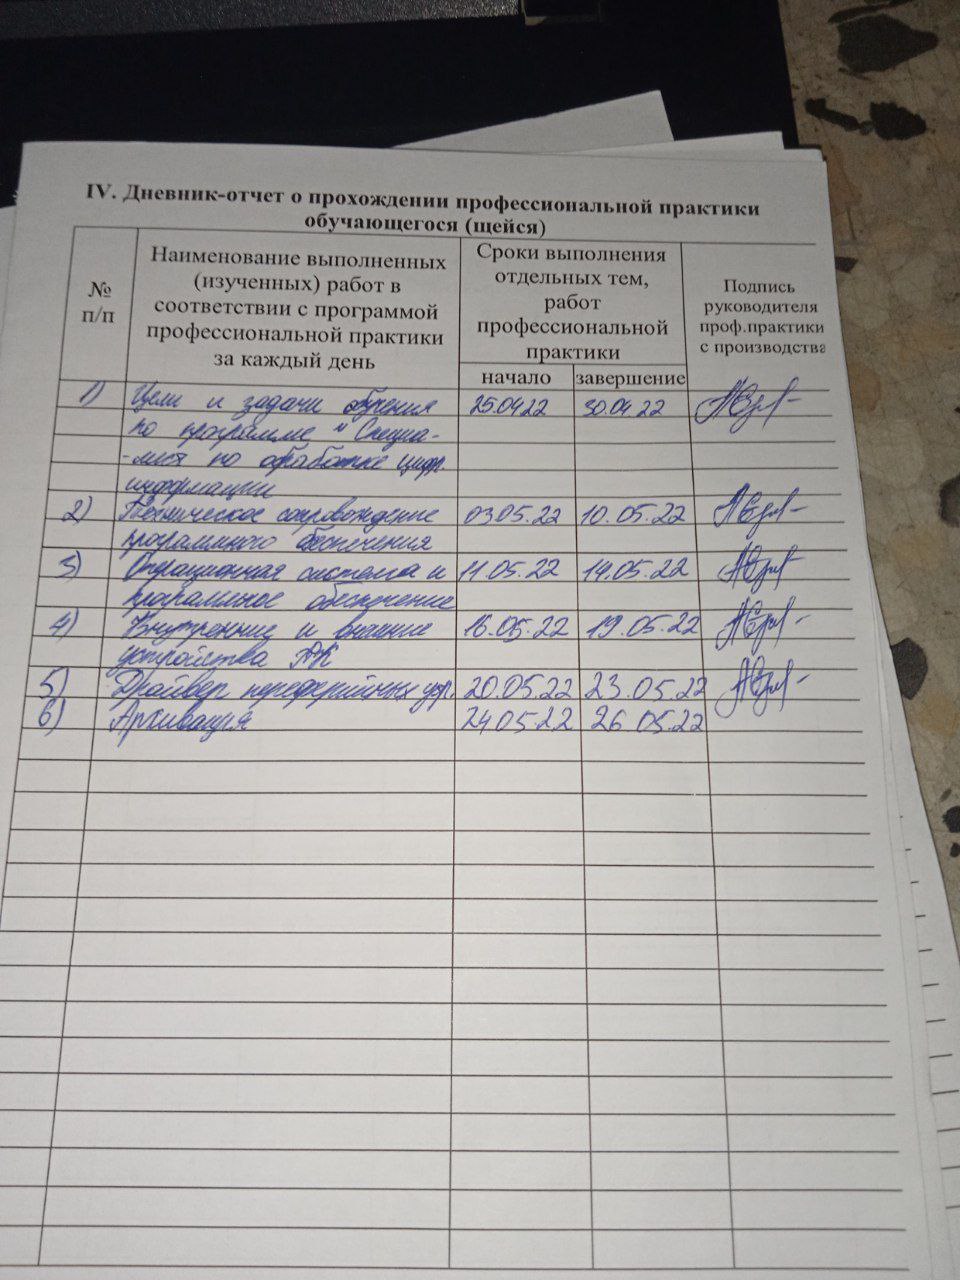 IV. Дневник-отчет о прохождении профессиональной практики
обучающегося (щейся)
№
п/п
Наименование выполненных
(изученных) работ в
соответствии с программой
профессиональной практики
за каждый день
Сроки выполнения
отдельных тем,
работ
профессиональной
практики
начало
завершение
Подпись
руководителя
проф.практики
с производства
1) Цели и задачи обучения 25.04.22 30.04.22
по программе "Специа-
-лист по обработке цифр.
информации
2) Техническое сопровождение 03.05.22 10.05.22
программного обеспечения
3) Операционная система и 11.05.22 14.05.22
программное обеспечение
4) Внутренние и внешние 16.05.22 19.05.22
устройства ПК
5) Драйвер переферийных устр. 20.05.22 23.05.22
6) Архивация 24.05.22 26.05.22